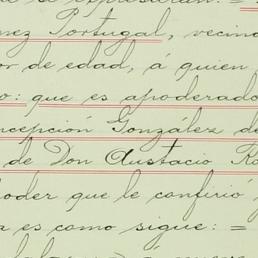 nez Portugal, vecino
or de edad, á quien
o: que es apoderado
ncepción González de
de Don Austacio
poder que le confirió
a es como sigue: =